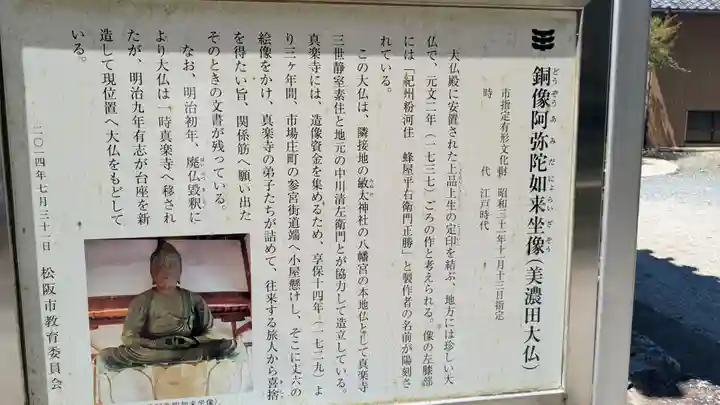 銅像阿弥陀如来坐像(美濃田大仏)
どうぞうあみだにょらいざぞう
市指定有形文化財 昭和三十一年十一月十三日指定
時代 江戸時代
大仏殿に安置された上品上生の定印を結ぶ、地方には珍しい大
仏で、元文二年(一七三七)ごろの作と考えられる。像の左膝部
には「紀州粉河住 蜂屋平右衛門正勝」と製作者の名前が陽刻さ
れている。
この大仏は、隣接地の敏太神社の八幡宮の本地仏として真楽寺
三世静室素住と地元の中川清左衛門とが協力して造立している。
真楽寺には、造像資金を集めるため、享保十四年(一七二九)よ
り三ヶ年間、市場庄町の参宮街道端へ小屋懸けし、そこに丈六の
絵像をかけ、真楽寺の弟子たちが詰めて、往来する旅人から喜捨
を得たい旨、関係筋へ願い出た
そのときの文書が残っている。
なお、明治初年、廃仏毀釈に
より大仏は一時真楽寺へ移され
たが、明治九年有志が台座を新
造して現位置へ大仏をもどして
いる。
二〇一四年七月三十一日 松阪市教育委員会